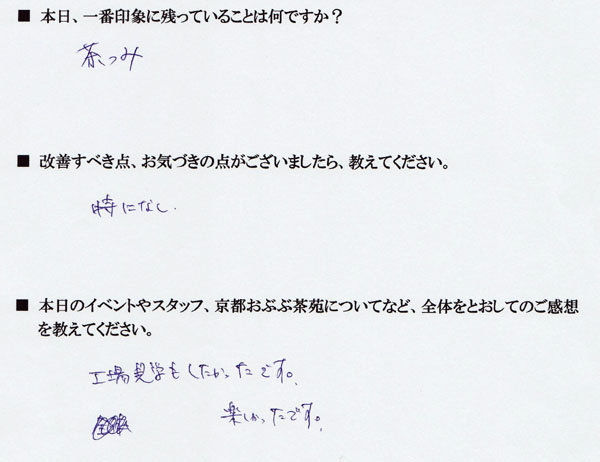 ■ 本日、一番印象に残っていることは何ですか？
茶つみ
■ 改善すべき点、お気づきの点がございましたら、教えてください。
時になし.
■ 本日のイベントやスタッフ、京都おぶぶ茶苑についてなど、全体をとおしてのご感想
を教えてください。
工場見学もしたかったです。
楽しかったです。